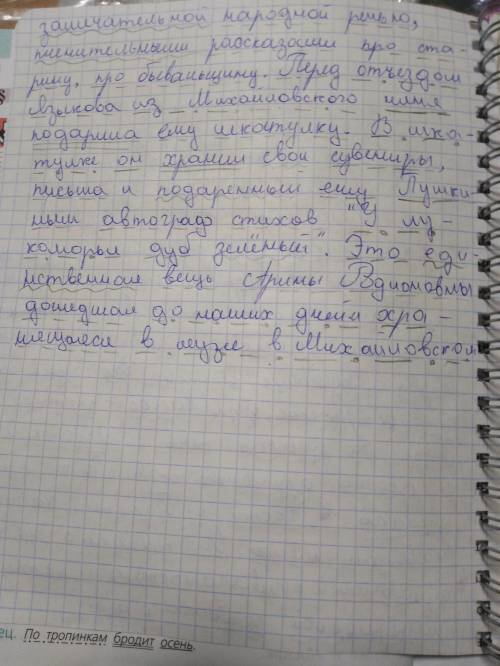 замичательной народной речью,
пленительными рассказами про ста-
рину, про бывальщину. Перед отъездом
Языкова из Михайловского няня
подарила ему шкатулку. В шка-
тулке он хранил свои сувениры,
письма и подаренный ему Пушки-
ным автограф стихов "У лу-
коморья дуб зелёный". Это еди-
нственная вещь Арины Родионовны
дошедшая до наших дней хра-
нящаяся в музее в Михайловском
ец. По тропинкам бродит осень.